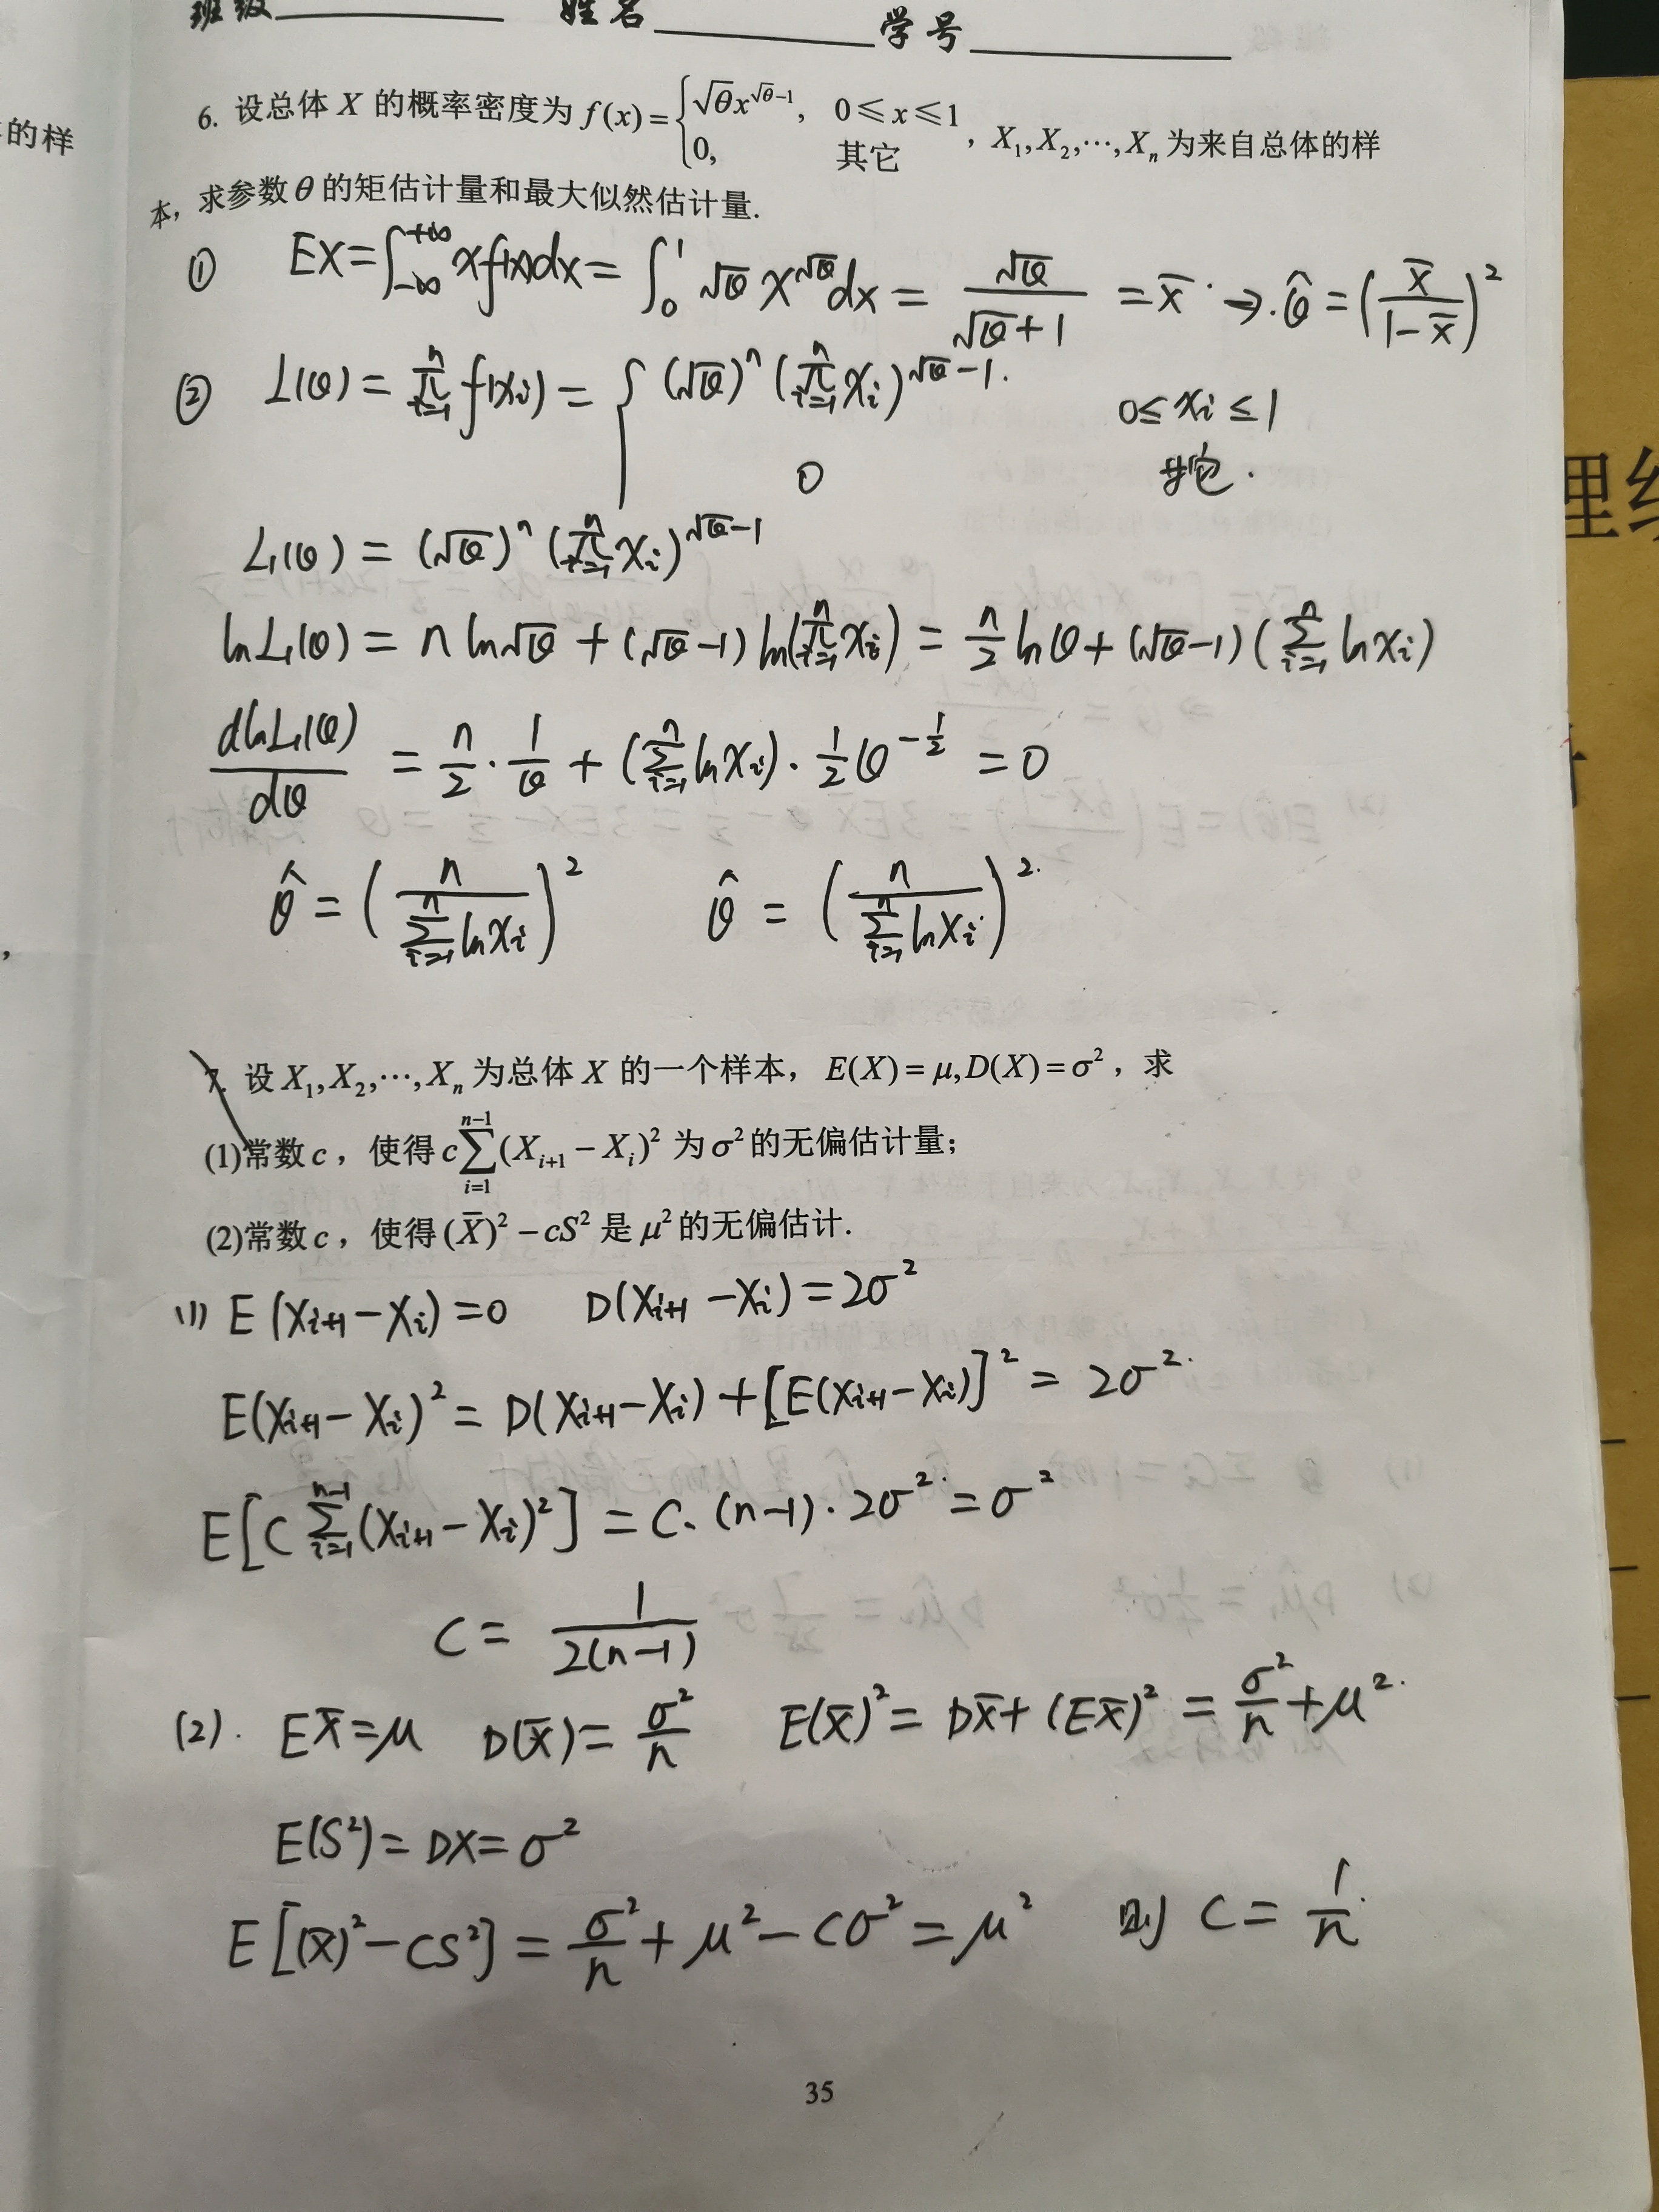 班级 姓名 学号
的样
6. 设总体 X 的概率密度为 f(x) = { √θ x^(√θ-1), 0≤x≤1
0, 其它 , X₁, X₂, ⋯, Xₙ 为来自总体的样
本, 求参数 θ 的矩估计量和最大似然估计量.
① EX = ∫_{-∞}^{+∞} x f(x) dx = ∫_0^1 √θ x^(√θ) dx = √θ/(√θ+1) = x̄ → θ̂ = (x̄/(1-x̄))²
② L(θ) = ∏_{i=1}^{n} f(xᵢ) = { (√θ)ⁿ (∏_{i=1}^{n} xᵢ)^(√θ-1) 0≤xᵢ≤1
0 其它.
L₁(θ) = (√θ)ⁿ (∏_{i=1}^{n} xᵢ)^(√θ-1)
ln L₁(θ) = n ln√θ + (√θ-1) ln(∏_{i=1}^{n} xᵢ) = n/2 lnθ + (√θ-1)(∑_{i=1}^{n} ln xᵢ)
d ln L₁(θ)/dθ = n/2 · 1/θ + (∑_{i=1}^{n} ln xᵢ) · 1/2 θ^(-1/2) = 0
θ̂ = (n/∑_{i=1}^{n} ln xᵢ)² θ̂ = (n/∑_{i=1}^{n} ln Xᵢ)²
7. 设 X₁, X₂, ⋯, Xₙ 为总体 X 的一个样本, E(X) = μ, D(X) = σ², 求
(1)常数 c, 使得 c∑_{i=1}^{n-1} (X_{i+1} - Xᵢ)² 为 σ² 的无偏估计量;
(2)常数 c, 使得 (X̄)² - cS² 是 μ² 的无偏估计.
(1) E(X_{i+1} - Xᵢ) = 0 D(X_{i+1} - Xᵢ) = 2σ²
E(X_{i+1} - Xᵢ)² = D(X_{i+1} - Xᵢ) + [E(X_{i+1} - Xᵢ)]² = 2σ²
E[C ∑_{i=1}^{n-1} (X_{i+1} - Xᵢ)²] = C·(n-1)·2σ² = σ²
C = 1/(2(n-1))
(2). EX̄ = μ D(X̄) = σ²/n E(X̄)² = DX̄ + (EX̄)² = σ²/n + μ²
E(S²) = DX = σ²
E[(X̄)² - CS²] = σ²/n + μ² - Cσ² = μ² 则 C = 1/n
35